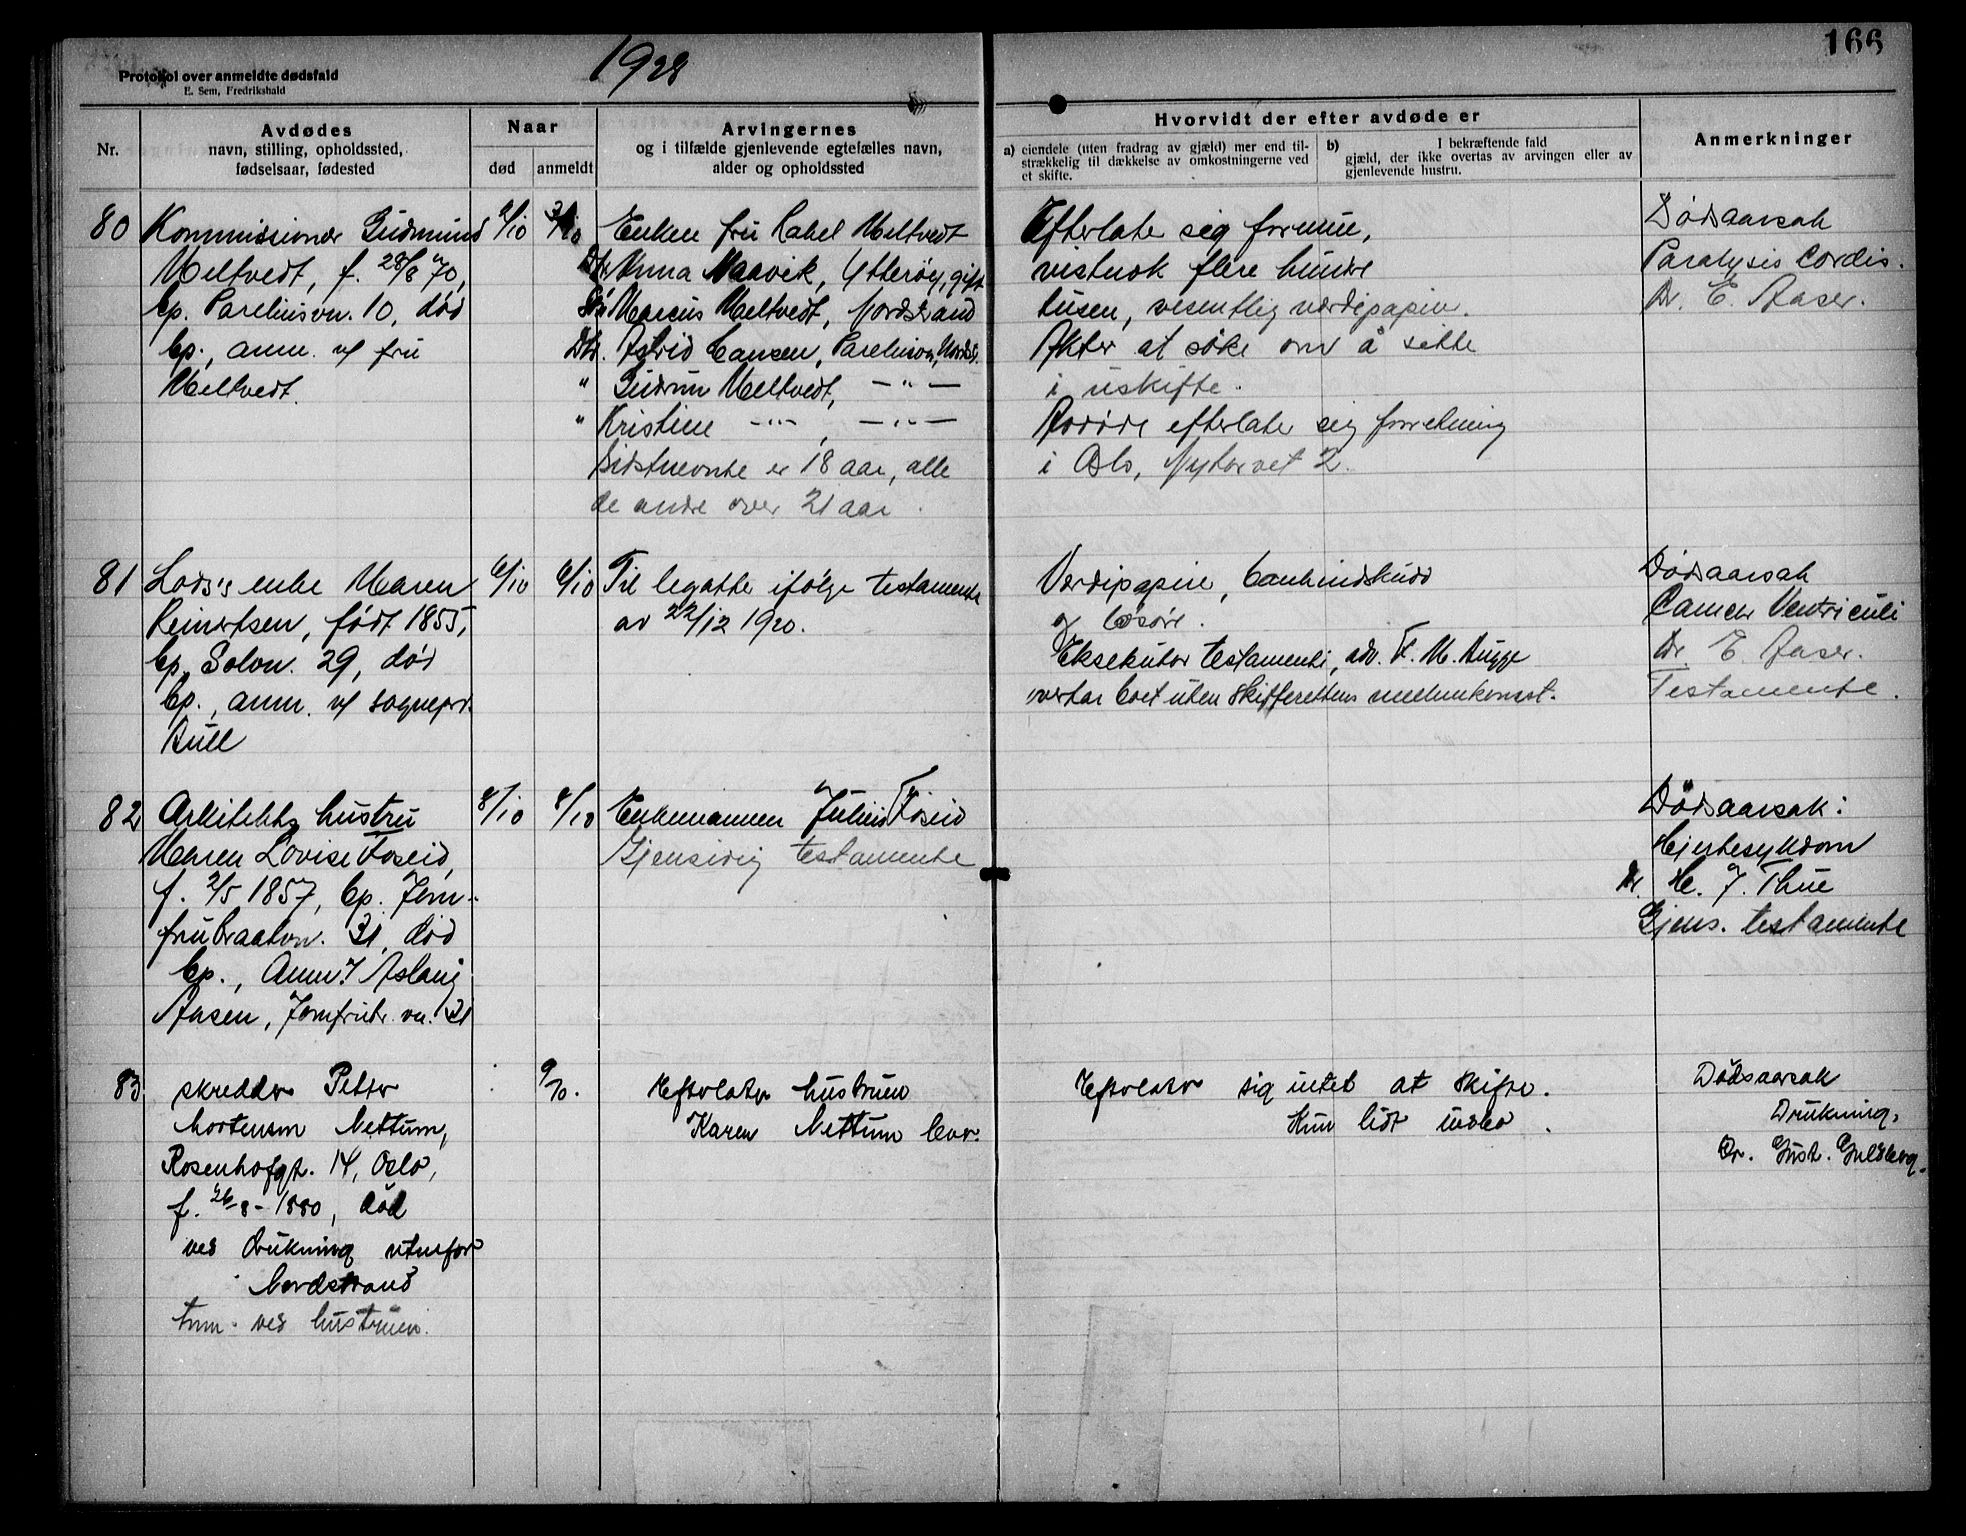 166
1928
Protokol over anmeldte dødsfald
E. Sem, Fredrikshald
Nr.
Avdødes
navn, stilling, opholdssted,
fødselsaar, fødested
Naar
død
anmeldt
Arvingernes
og i tilfælde gjenlevende egtefælles navn,
alder og opholdssted
Hvorvidt der efter avdøde er
a) eiendele (uten fradrag av gjæld) mer end til-
strækkelig til dækkelse av omkostningerne ved
et skifte.
b) I bekræftende fald
gjæld, der ikke overtas av arvingen eller av
gjenlevende hustru.
Anmerkninger
80
Kommissionær Gudmund
Meltvedt, f. 28/8 70,
bp. Parelliusvn. 10, død
bp., anm. v/ fru
Meltvedt.
2/10
3/10
Enken fru Rakel Meltvedt
Dtr. Anna Maavik, Ytterøy, gift
Søn Marcus Meltvedt, Nordstrand
Dtr. Astrid Hansen, Nordstr.
" Gudrun Meltvedt, — " —
" Kristine — " —, — " —
Sidstnevnte er 18 aar, alle
de andre over 21 aar.
Efterlater sig formue,
vistnok flere hundre
tusen, vesentlig værdipapir.
Akter at søke om å sitte
i uskifte.
Avdøde efterlater sig forretning
i Oslo, Nytorvet 2.
Dødsaarsak
Paralysis Cordis.
Dr. E. Aaser.
81
Lods's enke Maren
Reinertsen, født 1855,
bp. Solvn. 29, død
bp., anm. v/ sognepr.
Bull
6/10
6/10
Til legatter ifølge testamente
av 22/12 1920.
Værdipapire, bankindskudd
og løsøre.
Eksekutor testamenti, adv. F. M. Bugge
overtar boet uten skifterettens mellemkomst.
Dødsaarsak
Cancer Ventriculi
Dr. E. Aaser.
Testamente.
82
Arkitekts hustru
Maren Lovise Foseid,
f. 2/5 1857, bp. Jom-
frubraatvn. 31, død
bp., Anm. v/ Aslaug
Aasen, Jomfrubr. vn. 31
8/10
8/10
Enkemannen Julius Foseid
Gjensidig testamente
Dødsaarsak:
Hjertesykdom
Dr. H. J. Thue
Gjens. testamente
83
skredder Petter
Mortensen Nettum,
Rosenhofgt. 14, Oslo,
f. 26-8-1880, død
ved drukning utenfor
Nordstrand
anm. ved hustruen.
9/10.
Efterlater hustruen
Karen Nettum
Efterlater sig intet at skifte.
Kun lidt indbo.
Dødsaarsak
Drukning.
Dr. Gust. Guldberg.